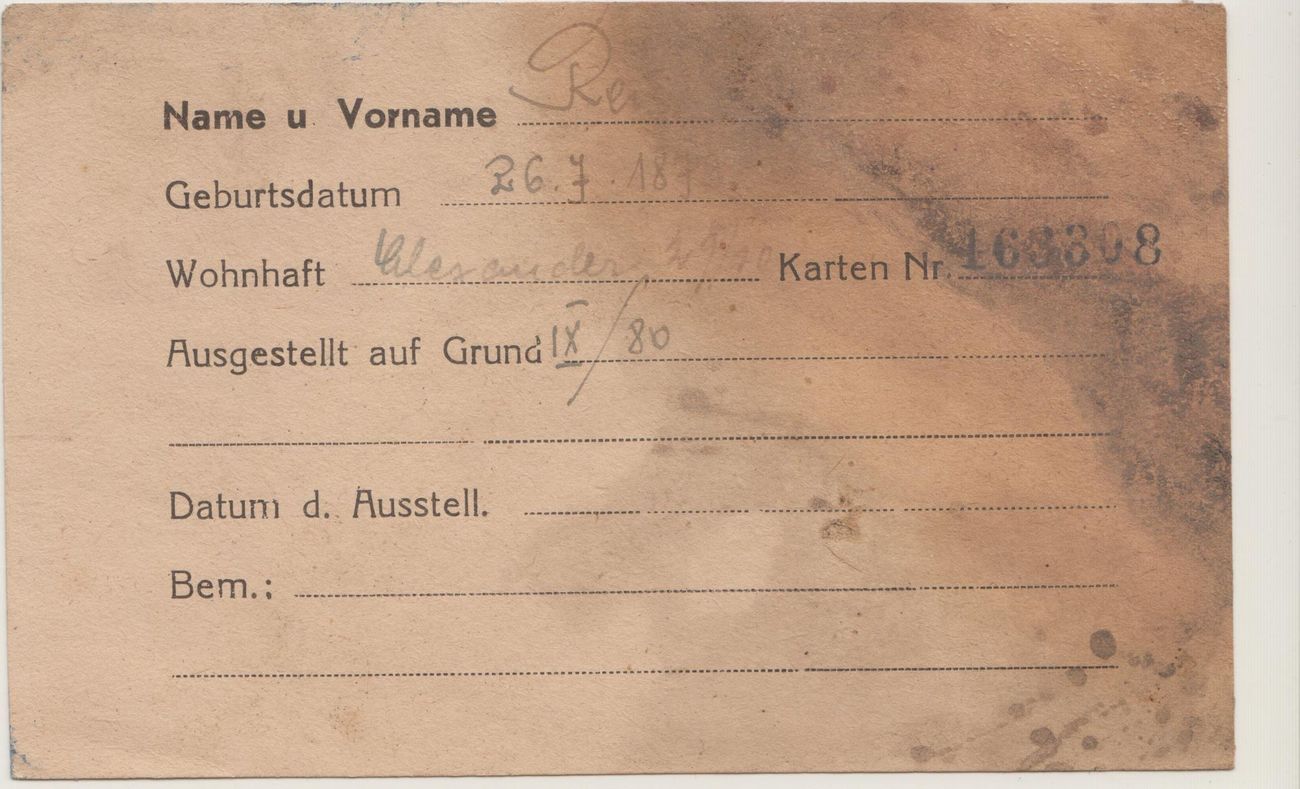 Name u Vorname
Geburtsdatum 26.7.187
Wohnhaft Alexander Karten Nr. 163308
Ausgestellt auf Grund IX/80
Datum d. Ausstell.
Bem.: